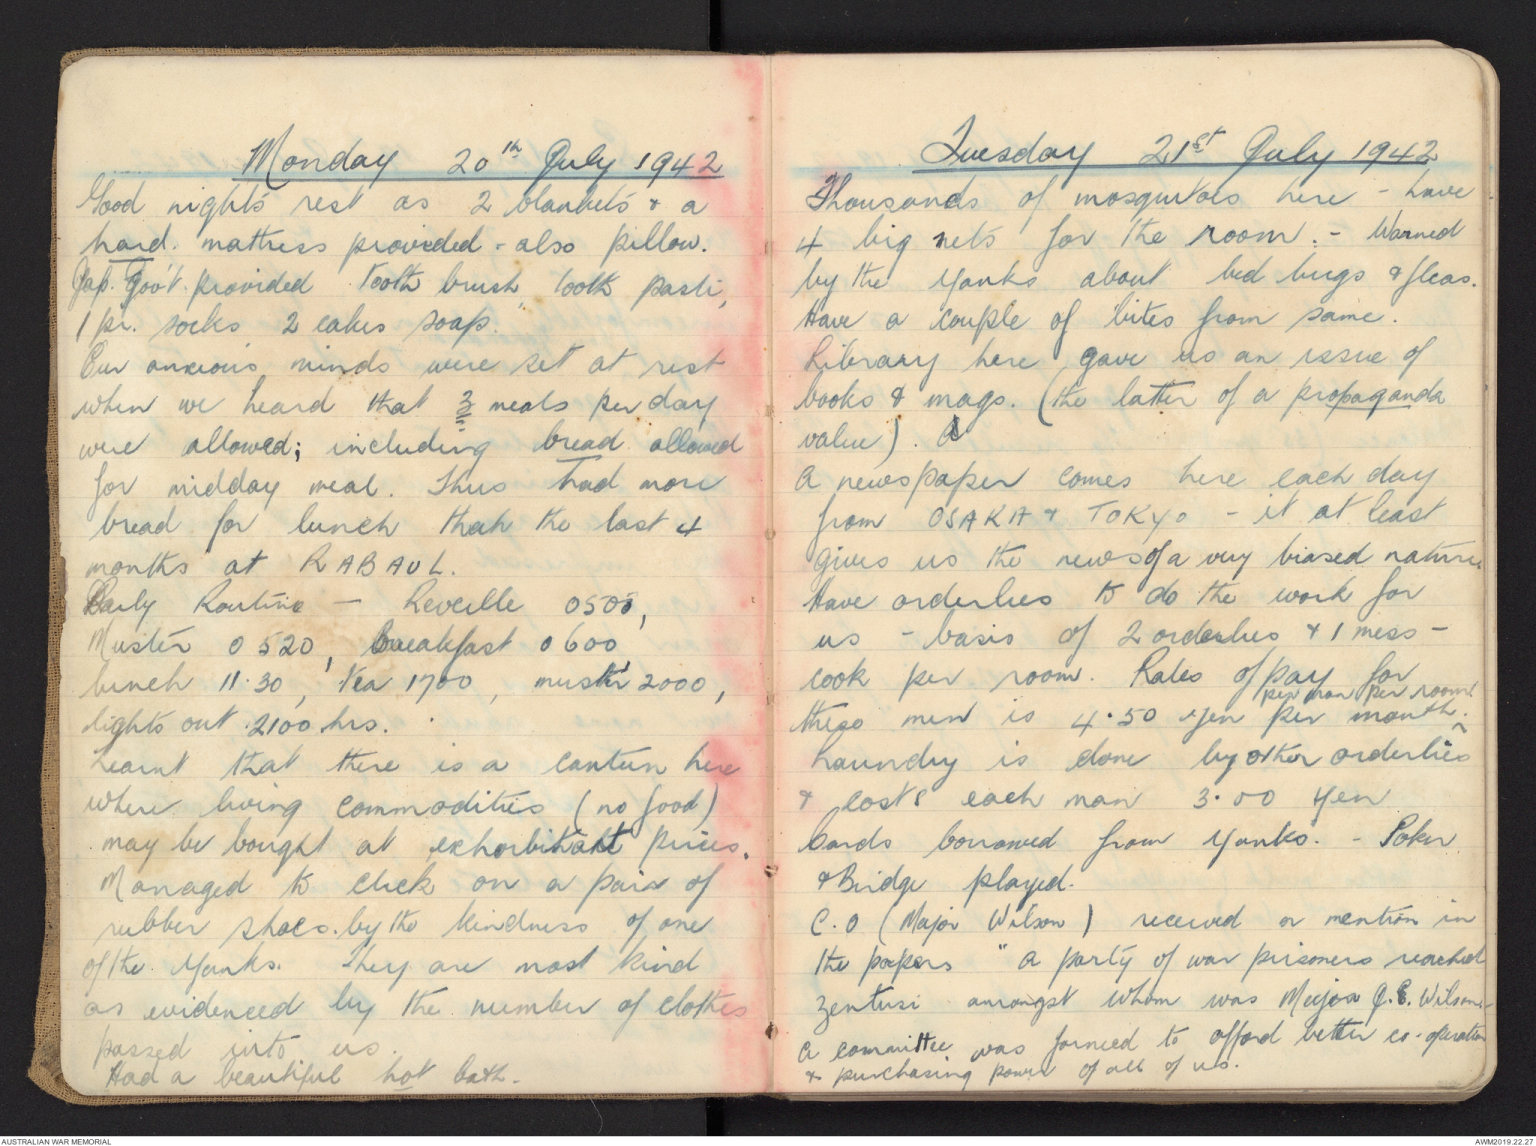 Monday 20th July 1942
Good nights rest as 2 blankets & a
hard. mattress provided - also pillow.
Jap. Gov't. provided tooth brush tooth paste,
1 pr. socks 2 cakes soap.
Our anxious minds were set at rest
when we heard that 3 meals per day
were allowed; including bread allowed
for midday meal. Thus had more
bread for lunch than the last 4
months at RABAUL.
Daily Routine — Reveille 0500,
Muster 0520, Breakfast 0600
lunch 11.30, Tea 1700, muster 2000,
lights out 2100 hrs.
Learnt that there is a canteen here
where living commodities (no food)
may be bought at exhorbitant prices.
Managed to click on a pair of
rubber shoes. by the kindness of one
of the Yanks. They are most kind
as evidenced by the number of clothes
passed into us.
Had a beautiful hot bath.
Tuesday 21st July 1942
Thousands of mosquitoes here - have
4 big nets for the room. - Warned
by the Yanks about bed bugs & fleas.
Have a couple of bites from same.
Library here gave us an issue of
books & mags. (the latter of a propaganda
value). A
A newspaper comes here each day
from OSAKA & TOKYO - it at least
gives us the news of a very biased nature.
Have orderlies to do the work for
us - basis of 2 orderlies & 1 mess-
cook per room. Rates of pay for
per man per room
these men is 4.50 yen per month.
Laundry is done by other orderlies
& costs each man 3.00 Yen
Cards borrowed from Yanks. - Poker
& Bridge played.
C.O (Major Wilson) received a mention in
the papers "a party of war prisoners reached
Zentusi amongst whom was Major J.C. Wilson.
A committee was formed to afford better co-operation
& purchasing power of all of us.
AUSTRALIAN WAR MEMORIAL
AWM2019.22.27